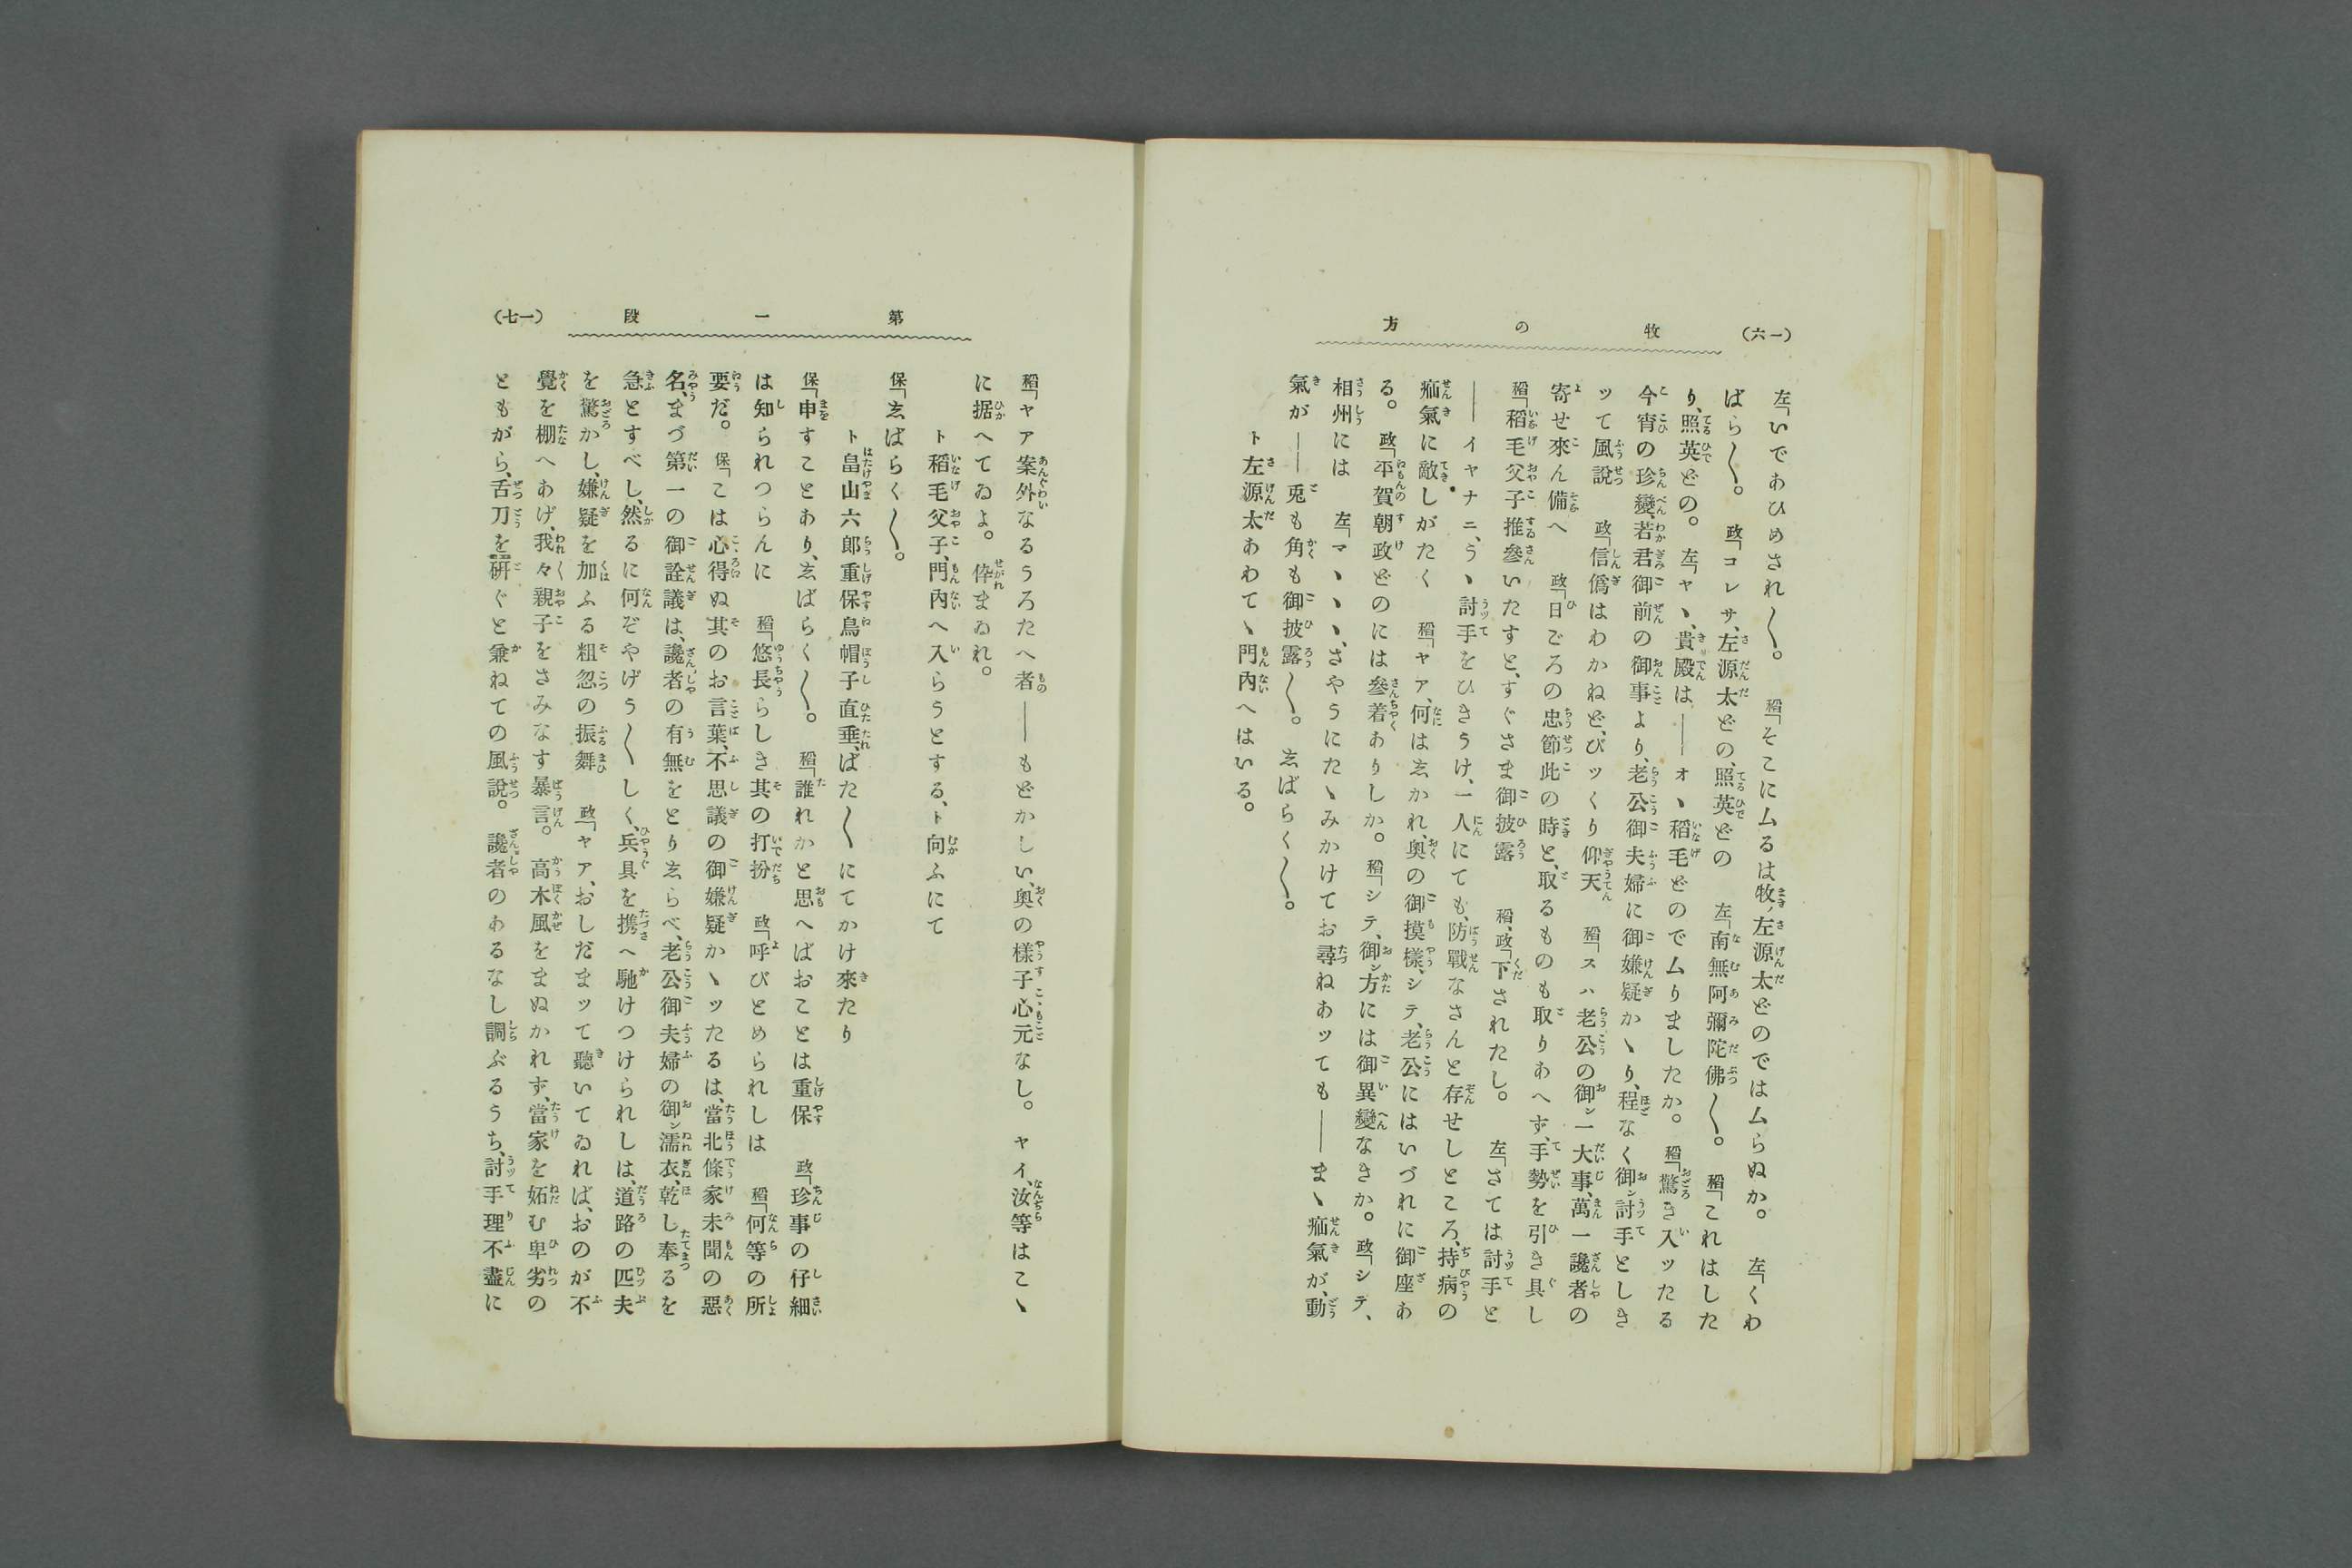 （一六）
牧の方
左「いであひめされ〱。　稻「そこにムるは牧ノ左源太どのではムらぬか。　左「くわ
ばら〱。　政「コレサ、左源太どの、照英どの　左「南無阿彌陀佛〱。　稻「これはした
り、照英どの。　左「ヤヽ、貴殿は――オヽ稻毛どのでムりましたか。　稻「驚き入ッたる
今宵の珍變、若君御前の御事より、老公御夫婦に御嫌疑かヽり、程なく御ン討手としき
ッて風說　政「信僞はわかねど、びッくり仰天　稻「スハ老公の御ン一大事、萬一讒者の
寄せ來ん備へ　政「日ごろの忠節此の時と、取るものも取りあへず、手勢を引き具し
稻「稻毛父子推參いたすと、すぐさま御披露　稻、政「下されたし。　左「さては討手と
――イヤナニ、うヽ討手をひきうけ、一人にても、防戰なさんと存せしところ、持病の
疝氣に敵しがたく　稻「ヤア、何はゑかれ、奧の御摸樣、シテ、老公にはいづれに御座あ
る。　政「平賀朝政どのには參着ありしか。　稻「シテ、御ン方には御異變なきか。　政「シテ、
相州には　左「マヽヽヽ、さやうにたヽみかけてお尋ねあッても――まヽ疝氣が、動
氣が――兎も角も御披露〱。　ゑばらく〱。
ト左源太あわてヽ門內へはいる。
第一段
（一七）
稻「ヤア案外なるうろたへ者――もどかしい、奧の樣子心元なし。　ヤイ、汝等はこヽ
に据へてゐよ。　倅まゐれ。
ト稻毛父子、門內へ入らうとする、ト向ふにて
保「ゑばらく〱。
ト畠山六郞重保烏帽子直垂、ばた〱にてかけ來たり
保「申すことあり、ゑばらく〱。　稻「誰れかと思へばおことは重保　政「珍事の仔細
は知られつらんに　稻「悠長らしき其の打扮　政「呼びとめられしは　稻「何等の所
要だ。　保「こは心得ぬ其のお言葉、不思議の御嫌疑かヽッたるは、當北條家未聞の惡
名、まづ第一の御詮議は、讒者の有無をとりゑらべ、老公御夫婦の御ン濡衣、乾し奉るを
急とすべし、然るに何ぞやげう〱しく、兵具を携へ馳けつけられしは、道路の匹夫
を驚かし、嫌疑を加ふる粗忽の振舞　政「ヤア、おしだまッて聽いてゐれば、おのが不
覺を棚へあげ、我々親子をさみなす暴言。　高木風をまぬかれず、當家を妬む卑劣の
ともがら、舌刀を硏ぐと兼ねての風說。　讒者のあるなし調ぶるうち、討手理不盡に